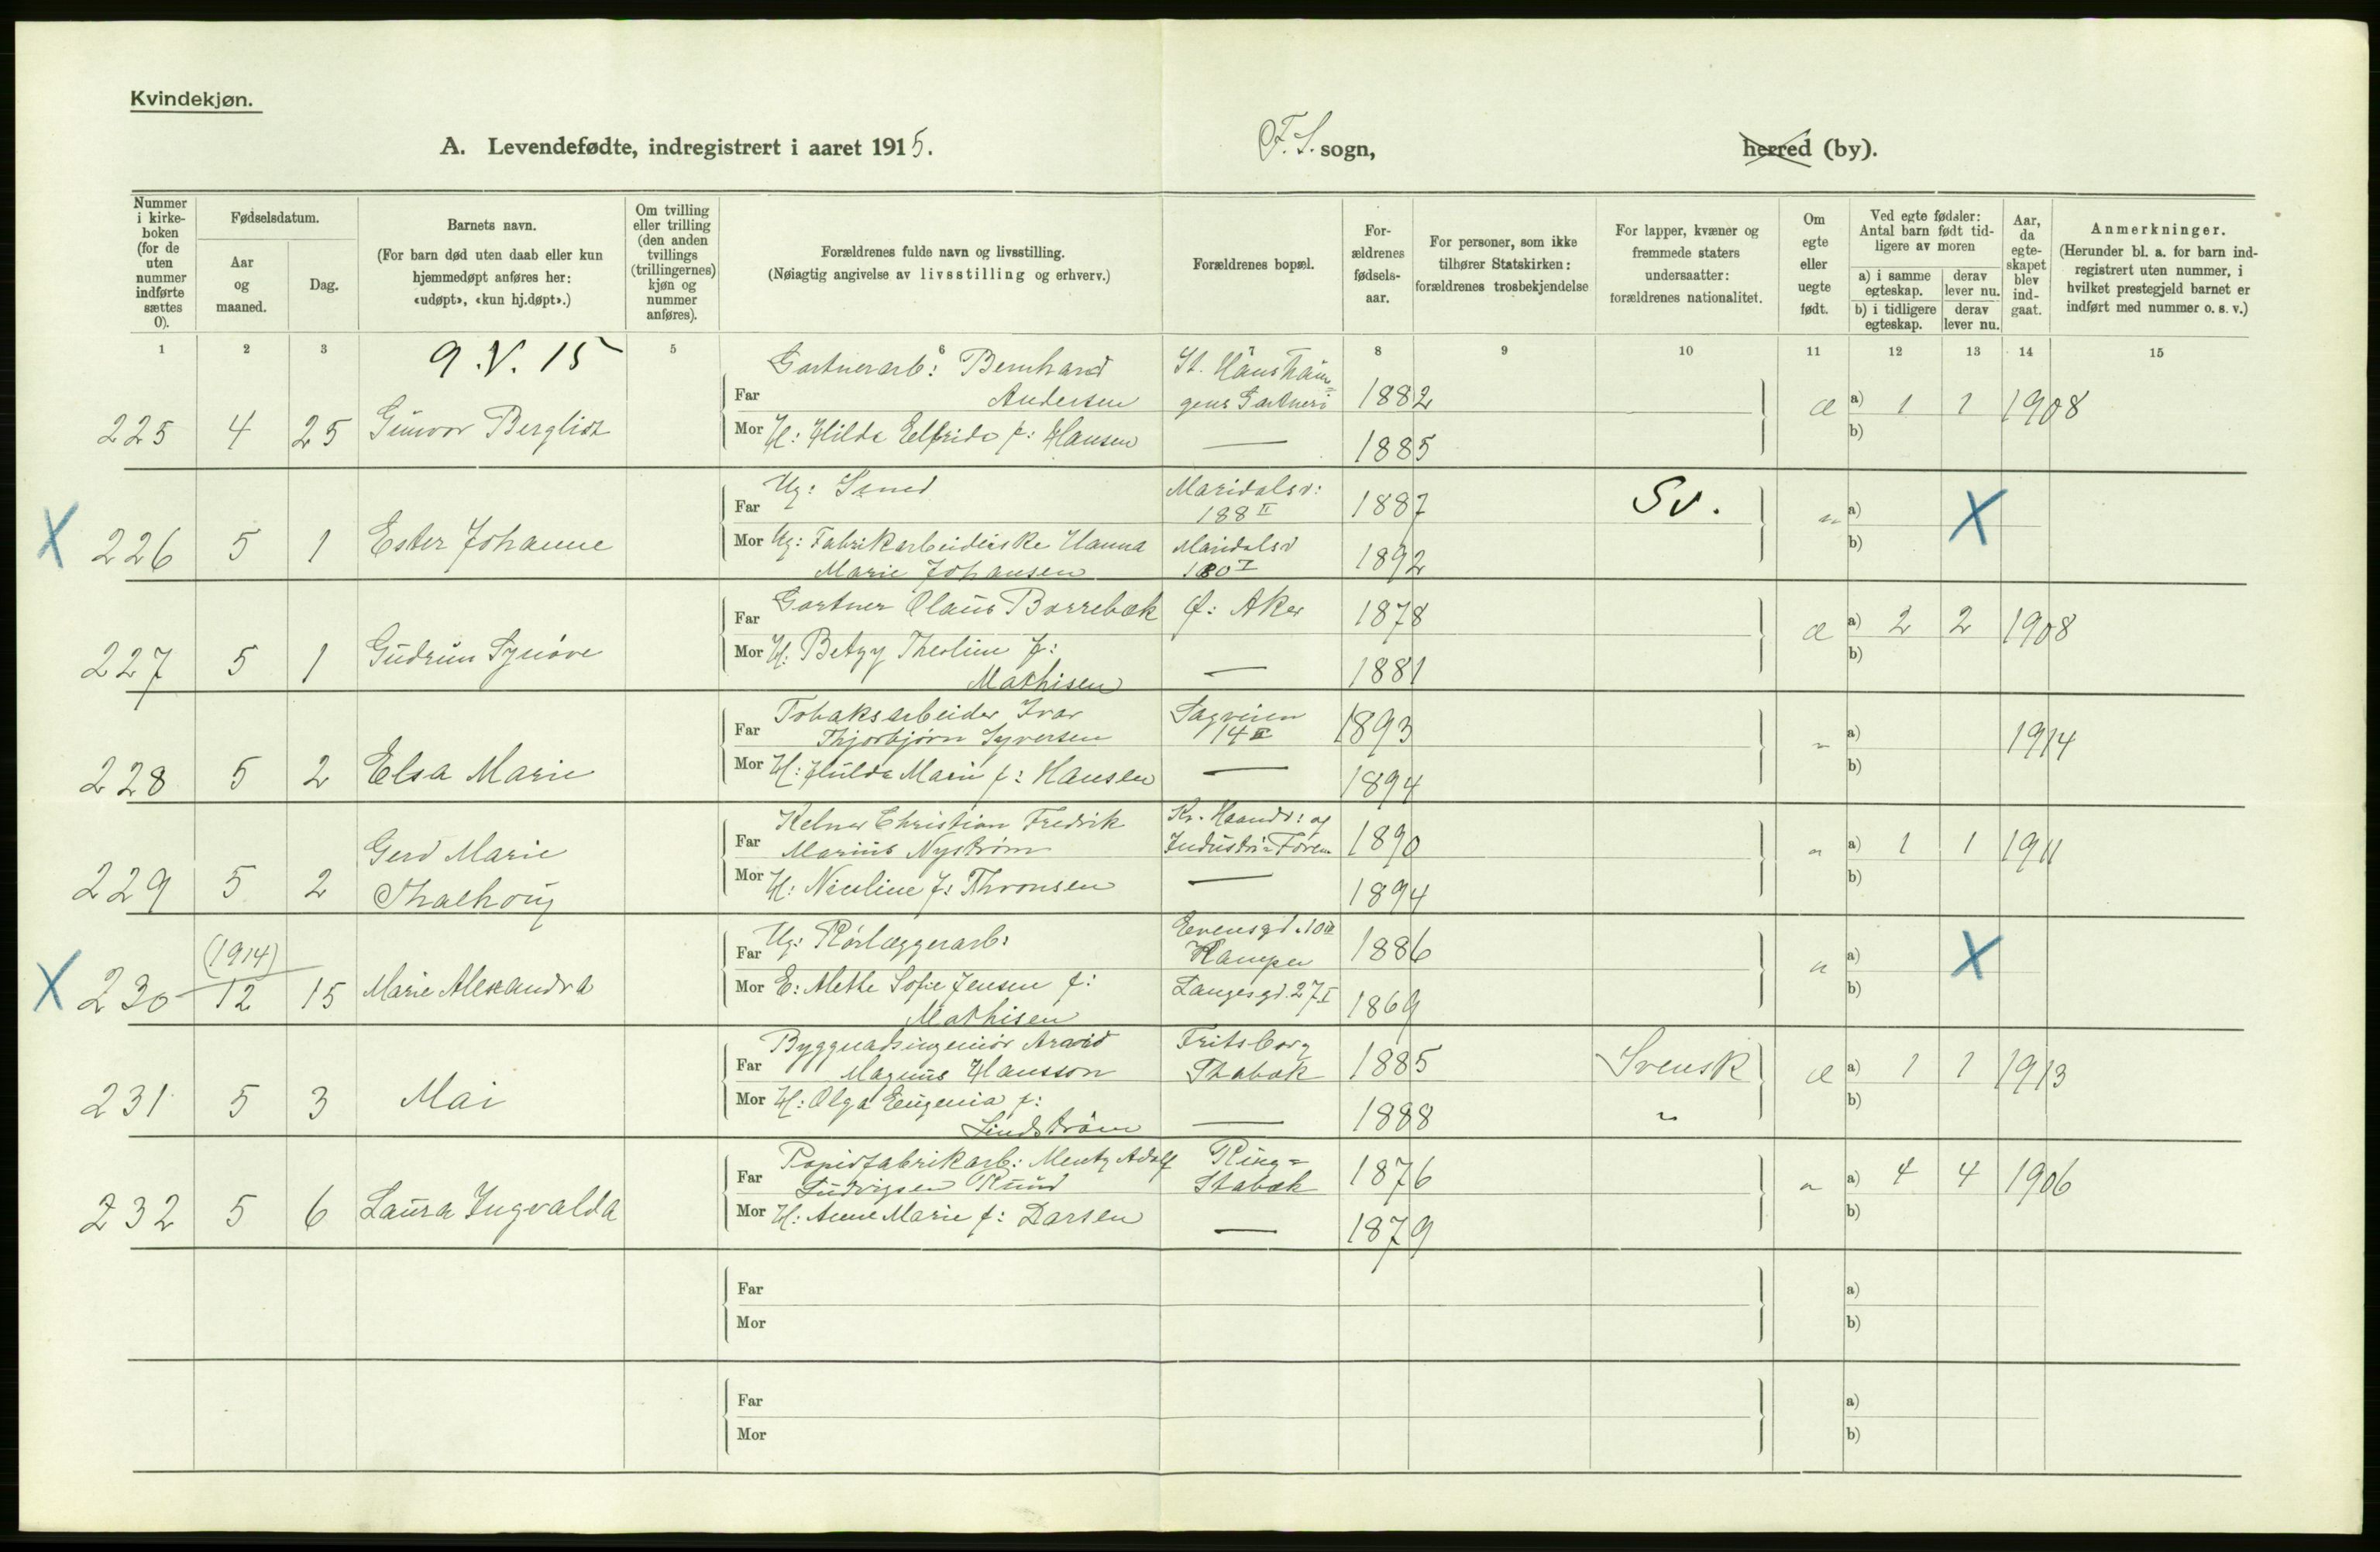 Kvindekjøn.
A. Levendefødte, indregistrert i aaret 1915. F. S. sogn, herred (by).
Nummer i kirke-boken (for de uten nummer indførte sættes 0).
Fødselsdatum.
Aar og maaned.
Dag.
Barnets navn.
(For barn død uten daab eller kun hjemmedøpt anføres her: «udøpt», «kun hj.døpt».)
Om tvilling eller trilling (den anden tvillings (trillingernes) kjøn og nummer anføres).
Forældrenes fulde navn og livsstilling.
(Nøiagtig angivelse av livsstilling og erhverv.)
Forældrenes bopæl.
For-ældrenes fødsels-aar.
For personer, som ikke tilhører Statskirken: forældrenes trosbekjendelse
For lapper, kvæner og fremmede staters undersaatter: forældrenes nationalitet.
Om egte eller uegte født.
Ved egte fødsler: Antal barn født tid-ligere av moren
a) i samme egteskap.
derav lever nu.
b) i tidligere egteskap.
derav lever nu.
Aar, da egte-skapet blev ind-gaat.
Anmerkninger.
(Herunder bl. a. for barn ind-registrert uten nummer, i hvilket prestegjeld barnet er indført med nummer o. s. v.)
1 2 3 5 6 7 8 9 10 11 12 13 14 15
9. V. 15
Far Gartnerarb: Bernhard Andersen St. Hanshaugens Gartneri 1882
225 4 25 Gunvor Bergliot
Mor H: Hilda Elfrida f: Hansen — 1885
Æ a) 1 1 1908
b)
Far Ug: Maridalsv: 188 II 1887 Sv.
X 226 5 1 Ester Johanne
Mor Ug: Fabrikarbeiderske Hanna Marie Johansen Maridalsv 180 I 1892
" a) X
b)
Far Gartner Olaus Borrebæk Ø: Aker 1878
227 5 1 Gudrun Synøve
Mor H: Betzy Theoline f: Mathisen — 1881
Æ a) 2 2 1908
b)
Far Tobaksarbeider Ivar Thjorbjørn Syversen Sagveien 14 1893
228 5 2 Elsa Marie
Mor H: Hulda Marie f: Hansen — 1894
" a) 1914
b)
Far Kelner Christian Fredrik Marius Nystrøm Kr. Haandv: og Industri-Foren. 1890
229 5 2 Gerd Marie
Mor H: Nicoline f: Thronsen — 1894
" a) 1 1 1911
b)
Far Ug: Rørlæggerarb: Evensgd. 10 1886
X 230 (1914) 12 15 Marie Alexandra
Mor E: Methe Sofie Jensen f: Mathisen Langesgd. 27 I 1869
" a) X
b)
Far Byggnadsingeniör Arvid Magnus Hansson Fritsborg Stabæk 1885 Svensk
231 5 3 Mai
Mor H: Olga Eugenia f: Lindström — 1888 "
Æ a) 1 1 1913
b)
Far Papirfabrikarb: Mentz Adolf Ludvigsen Ruud Ring= Stabæk 1876
232 5 6 Laura Ingvalda
Mor H: Anne Marie f: Larsen — 1879
" a) 4 4 1906
b)
Far a)
Mor b)
Far a)
Mor b)